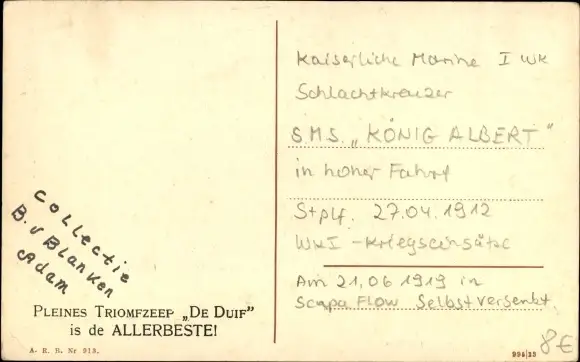 Kaiserliche Marine I WK
Schlachtkreuzer
S.M.S. „KÖNIG ALBERT"
in hoher Fahrt
Stplf. 27.04.1912
WKI - Kriegseinsätze
Am 21.06 1919 in
Scapa Flow Selbst versenkt
8€
COLLECTIE
B. v Blanken
Adam
PLEINES TRIOMFZEEP „DE DUIF"
is de ALLERBESTE!
A. R. B. Nr 913.